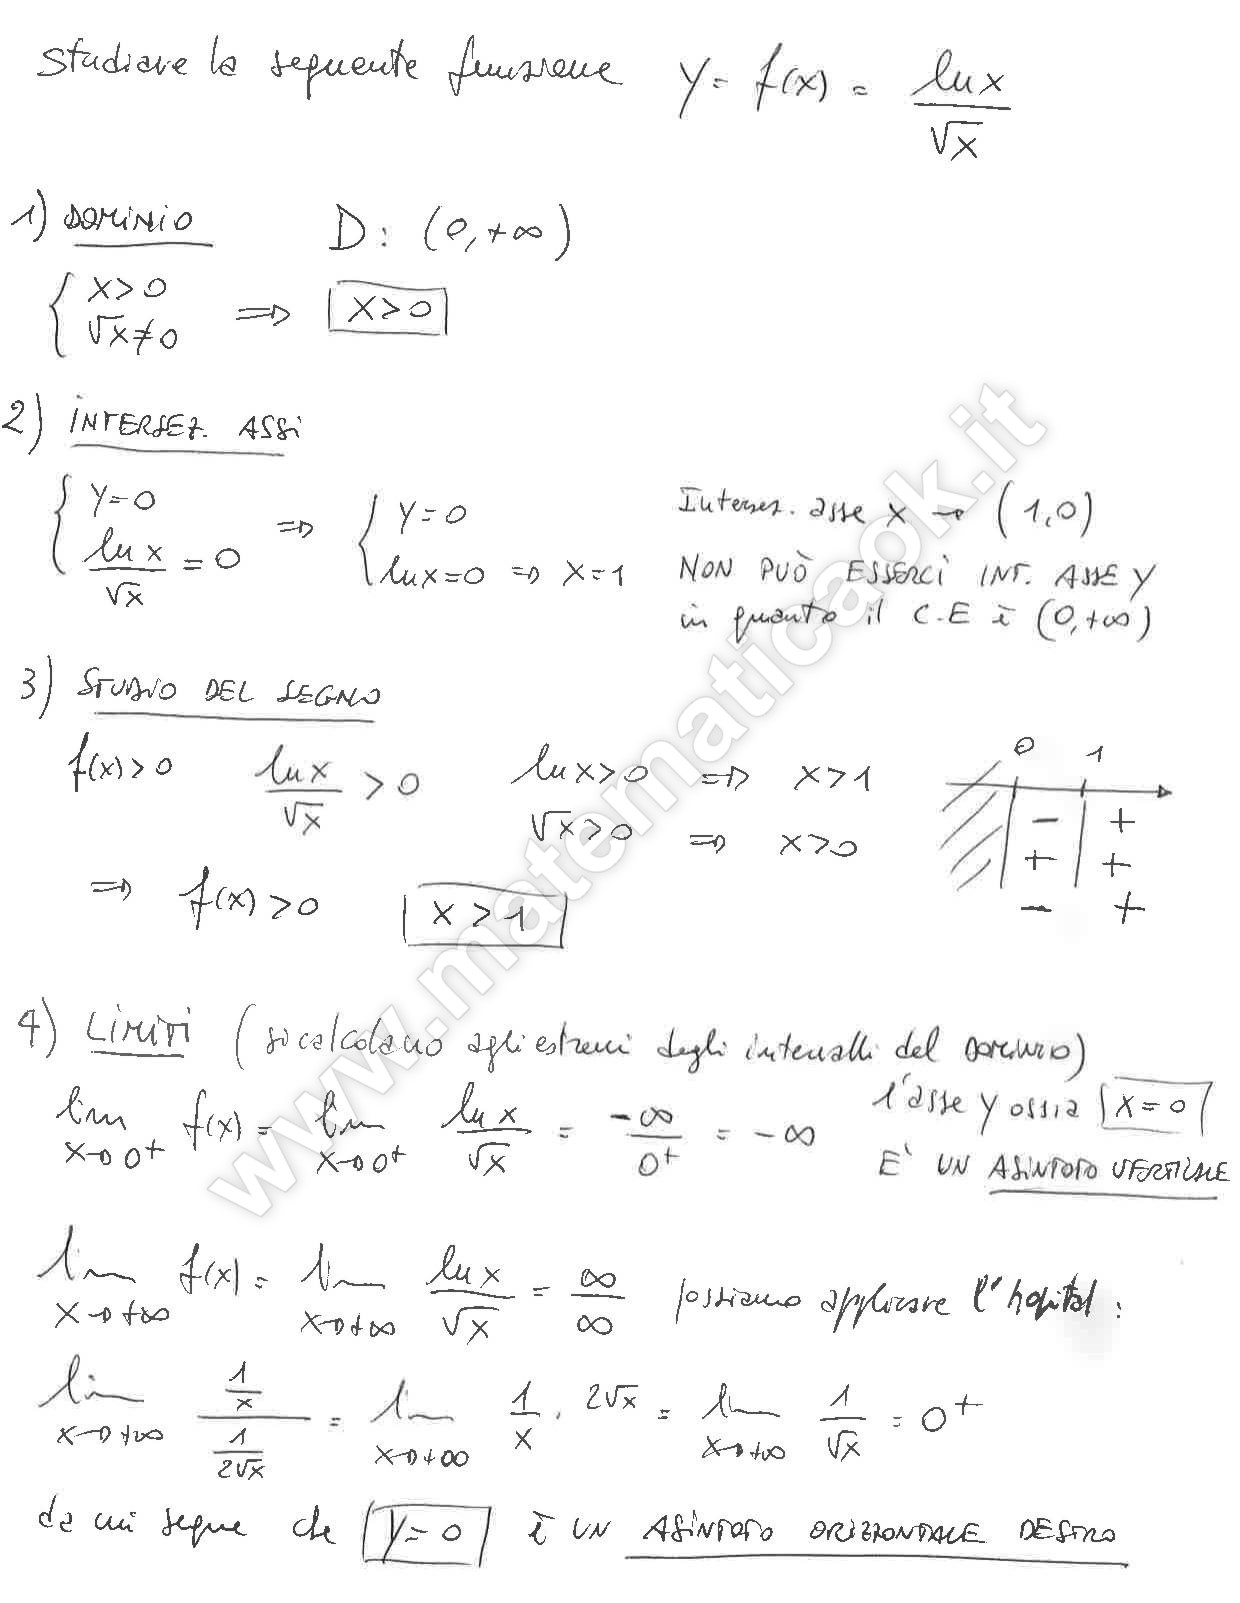 Studiare la seguente funzione y = f(x) = ln x / √x
1) DOMINIO D: (0, +∞)
{ x>0
√x≠0 ⇒ x>0
2) INTERSEZ. ASSI
{ y=0
ln x / √x = 0 ⇒ { y=0
ln x=0 ⇒ x=1
Intersez. asse x → (1,0)
NON PUÒ ESSERCI INT. ASSE Y
in quanto il C.E è (0,+∞)
3) STUDIO DEL SEGNO
f(x)>0 ln x / √x > 0 ln x>0 ⇒ x>1
√x>0 ⇒ x>0
0 1
- +
+ +
- +
⇒ f(x)>0 x>1
4) LIMITI (si calcolano agli estremi degli intervalli del DOMINIO)
lim x→0+ f(x) = lim x→0+ ln x / √x = -∞ / 0+ = -∞
l'asse y ossia x=0
E' UN ASINTOTO VERTICALE
lim x→+∞ f(x) = lim x→+∞ ln x / √x = ∞ / ∞ possiamo applicare l'hopital:
lim x→+∞ (1/x) / (1/2√x) = lim x→+∞ 1/x · 2√x = lim x→+∞ 1/√x = 0+
da cui segue che y=0 è UN ASINTOTO ORIZZONTALE DESTRO
www.matematicaok.it